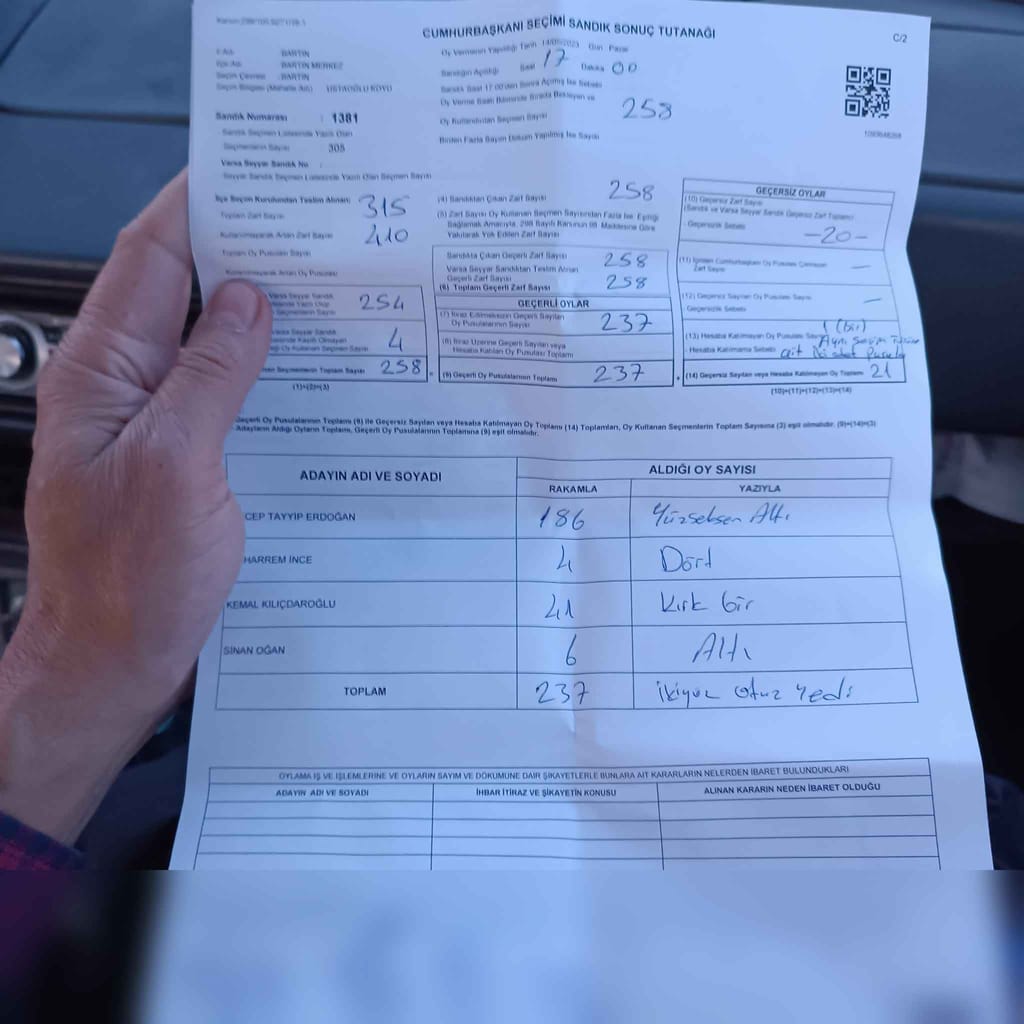 CUMHURBAŞKANI SEÇİMİ SANDIK SONUÇ TUTANAĞI
C/2
BARTIN
BARTIN MERKEZ
Seçim Çevresi : BARTIN
Oy Vermenin Yapıldığı Tarih 14/05/2023 Gün Pazar
Sandığın Açıldığı Saat 17 Dakika 00
Sandık Saat 17:00'den Sonra Açılmış İse Sebebi
Oy Kullandırılan Seçmen Sayısı 258
Birden Fazla Sayım Döküm Yapılmış İse Sayısı
Sandık Numarası : 1381
Sandık Seçmen Listesinde Yazılı Olan
Seçmenlerin Sayısı 305
Varsa Seyyar Sandık No :
Seyyar Sandık Seçmen Listesinde Yazılı Olan Seçmen Sayısı
İlçe Seçim Kurulundan Teslim Alınan:
Toplam Zarf Sayısı 315
Kullanılmayarak Artan Zarf Sayısı 410
Toplam Oy Pusulası Sayısı
Kullanılmayarak Artan Oy Pusulası
254
4
258
(1)+(2)=(3)
(4) Sandıktan Çıkan Zarf Sayısı 258
(5) Zarf Sayısı Oy Kullanan Seçmen Sayısından Fazla İse, Eşitliği
Sağlamak Amacıyla, 298 Sayılı Kanunun 98. Maddesine Göre
Yakılarak Yok Edilen Zarf Sayısı
Sandıkta Çıkan Geçerli Zarf Sayısı 258
Varsa Seyyar Sandıktan Teslim Alınan
Geçerli Zarf Sayısı
(6) Toplam Geçerli Zarf Sayısı 258
GEÇERLİ OYLAR
(7) İtiraz Edilmeksizin Geçerli Sayılan
Oy Pusulalarının Sayısı 237
(8) İtiraz Üzerine Geçerli Sayılan veya
Hesaba Katılan Oy Pusulası Toplamı
(9) Geçerli Oy Pusulalarının Toplamı 237
GEÇERSİZ OYLAR
(10) Geçersiz Zarf Sayısı
(Sandık ve Varsa Seyyar Sandık Geçersiz Zarf Toplamı)
Geçersizlik Sebebi -20-
Zarf Sayısı —
(12) Geçersiz Sayılan Oy Pusulası Sayısı —
Geçersizlik Sebebi
(13) Hesaba Katılmayan Oy Pusulası Sayısı 1 (bir)
Hesaba Katılmama Sebebi
(14) Geçersiz Sayılan veya Hesaba Katılmayan Oy Toplamı 21
(10)+(11)+(12)+(13)=(14)
Geçerli Oy Pusulalarının Toplamı (9) ile Geçersiz Sayılan veya Hesaba Katılmayan Oy Toplamı (14) Toplamları, Oy Kullanan Seçmenlerin Toplam Sayısına (3) eşit olmalıdır. (9)+(14)=(3)
Adayların Aldığı Oyların Toplamı, Geçerli Oy Pusulalarının Toplamına (9) eşit olmalıdır.
ADAYIN ADI VE SOYADI
ALDIĞI OY SAYISI
RAKAMLA YAZIYLA
CEP TAYYİP ERDOĞAN 186 Yüzseksen Altı
HARREM İNCE 4 Dört
KEMAL KILIÇDAROĞLU 41 Kırk bir
SİNAN OĞAN 6 Altı
TOPLAM 237 ikiyüz otuz yedi
OYLAMA İŞ VE İŞLEMLERİNE VE OYLARIN SAYIM VE DÖKÜMÜNE DAİR ŞİKAYETLERLE BUNLARA AİT KARARLARIN NELERDEN İBARET BULUNDUKLARI
ADAYIN ADI VE SOYADI İHBAR İTİRAZ VE ŞİKAYETİN KONUSU ALINAN KARARIN NEDEN İBARET OLDUĞU